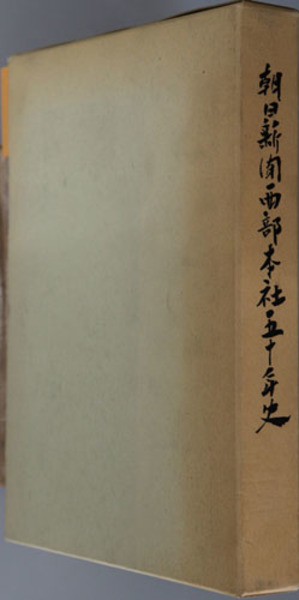 朝日新聞西部本社五十年史